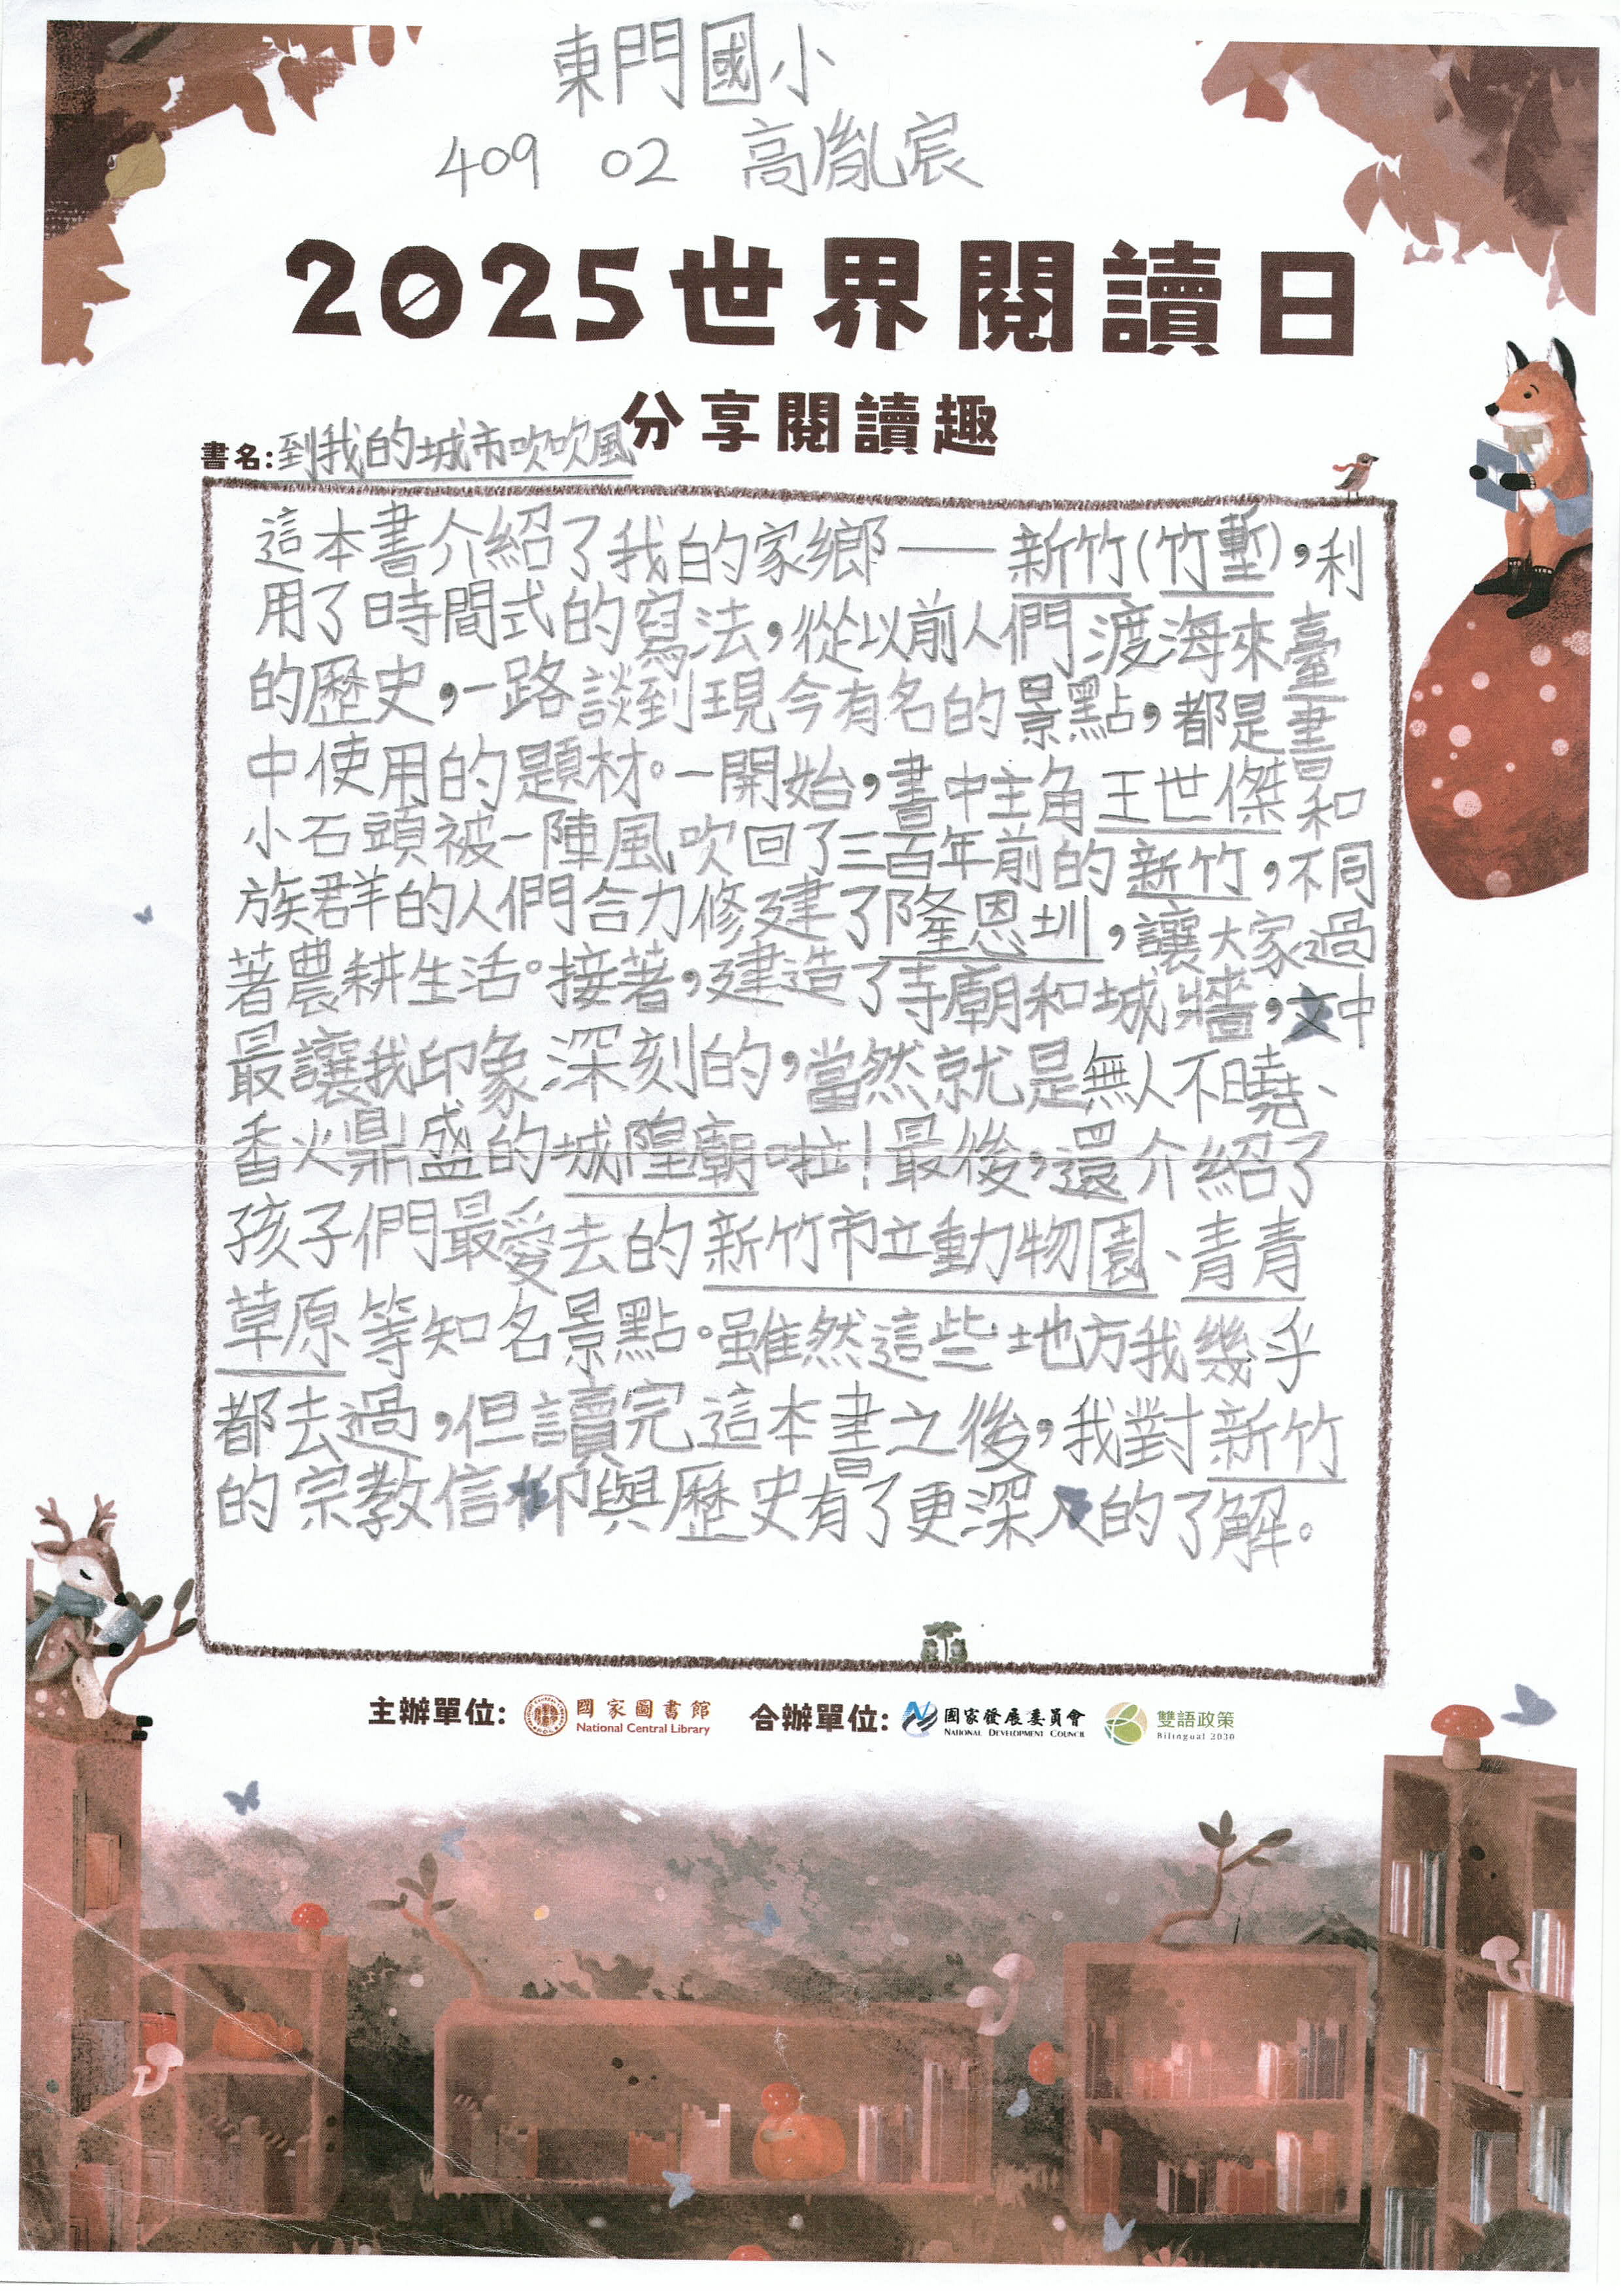 東門國小
409 02 高胤宸
2025世界閱讀日
分享閱讀趣
書名:到我的城市吹吹風
這本書介紹了我的家鄉——新竹(竹塹),利
用了時間式的寫法,從以前人們渡海來臺
的歷史,一路談到現今有名的景點,都是書
中使用的題材。一開始,書中主角王世傑和
小石頭被一陣風吹回了三百年前的新竹,不同
族群的人們合力修建了隆恩圳,讓大家過
著農耕生活。接著,建造了寺廟和城牆,文中
最讓我印象深刻的,當然就是無人不曉、
香火鼎盛的城隍廟啦!最後,還介紹了
孩子們最愛去的新竹市立動物園、青青
草原等知名景點。雖然這些地方我幾乎
都去過,但讀完這本書之後,我對新竹
的宗教信仰與歷史有了更深入的了解。
主辦單位: 國家圖書館 National Central Library 合辦單位: 國家發展委員會 NATIONAL DEVELOPMENT COUNCIL 雙語政策 Bilingual 2030